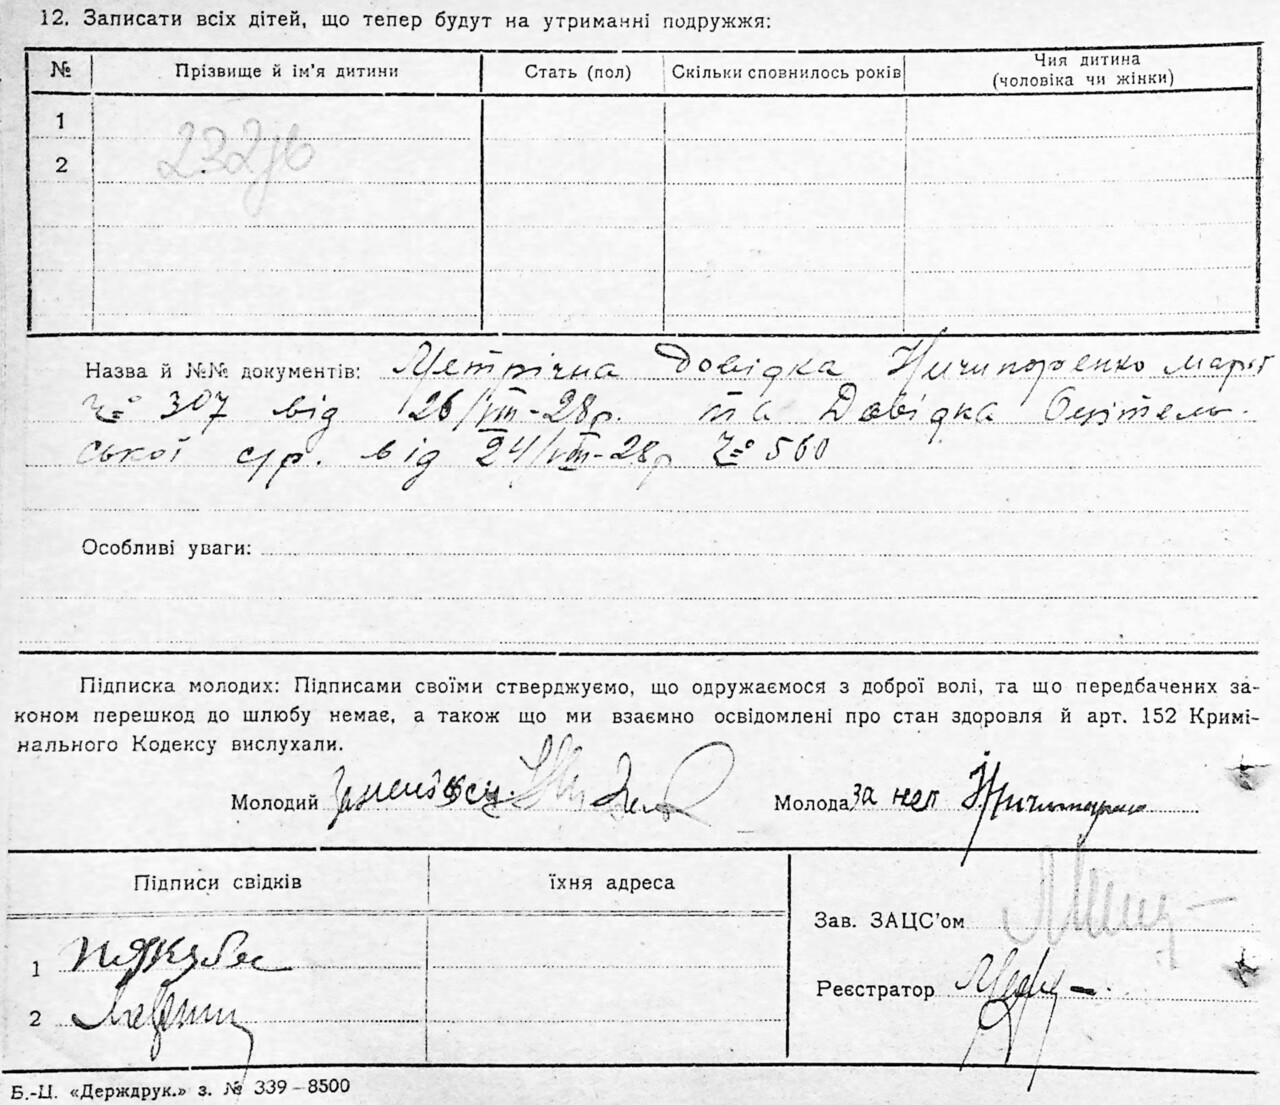 12. Записати всіх дітей, що тепер будут на утриманні подружжя:
№ Прізвище й ім'я дитини Стать (пол) Скільки сповнилось років Чия дитина
(чоловіка чи жінки)
1
2
Назва й №№ документів: Метрічна Довідка Ничипоренко
307 від 26/VIII-28р. та Довідка
ської с/р. від 24/VIII-28р 560
Особливі уваги:
Підписка молодих: Підписами своїми стверджуємо, що одружаємося з доброї волі, та що передбачених за-
коном перешкод до шлюбу немає, а також що ми взаємно освідомлені про стан здоровля й арт. 152 Кримі-
нального Кодексу вислухали.
Молодий Молода за неп
Підписи свідків Їхня адреса
Зав. ЗАЦС'ом
1
Реєстратор
2
Б.-Ц. «Держдрук.» з. № 339-8500